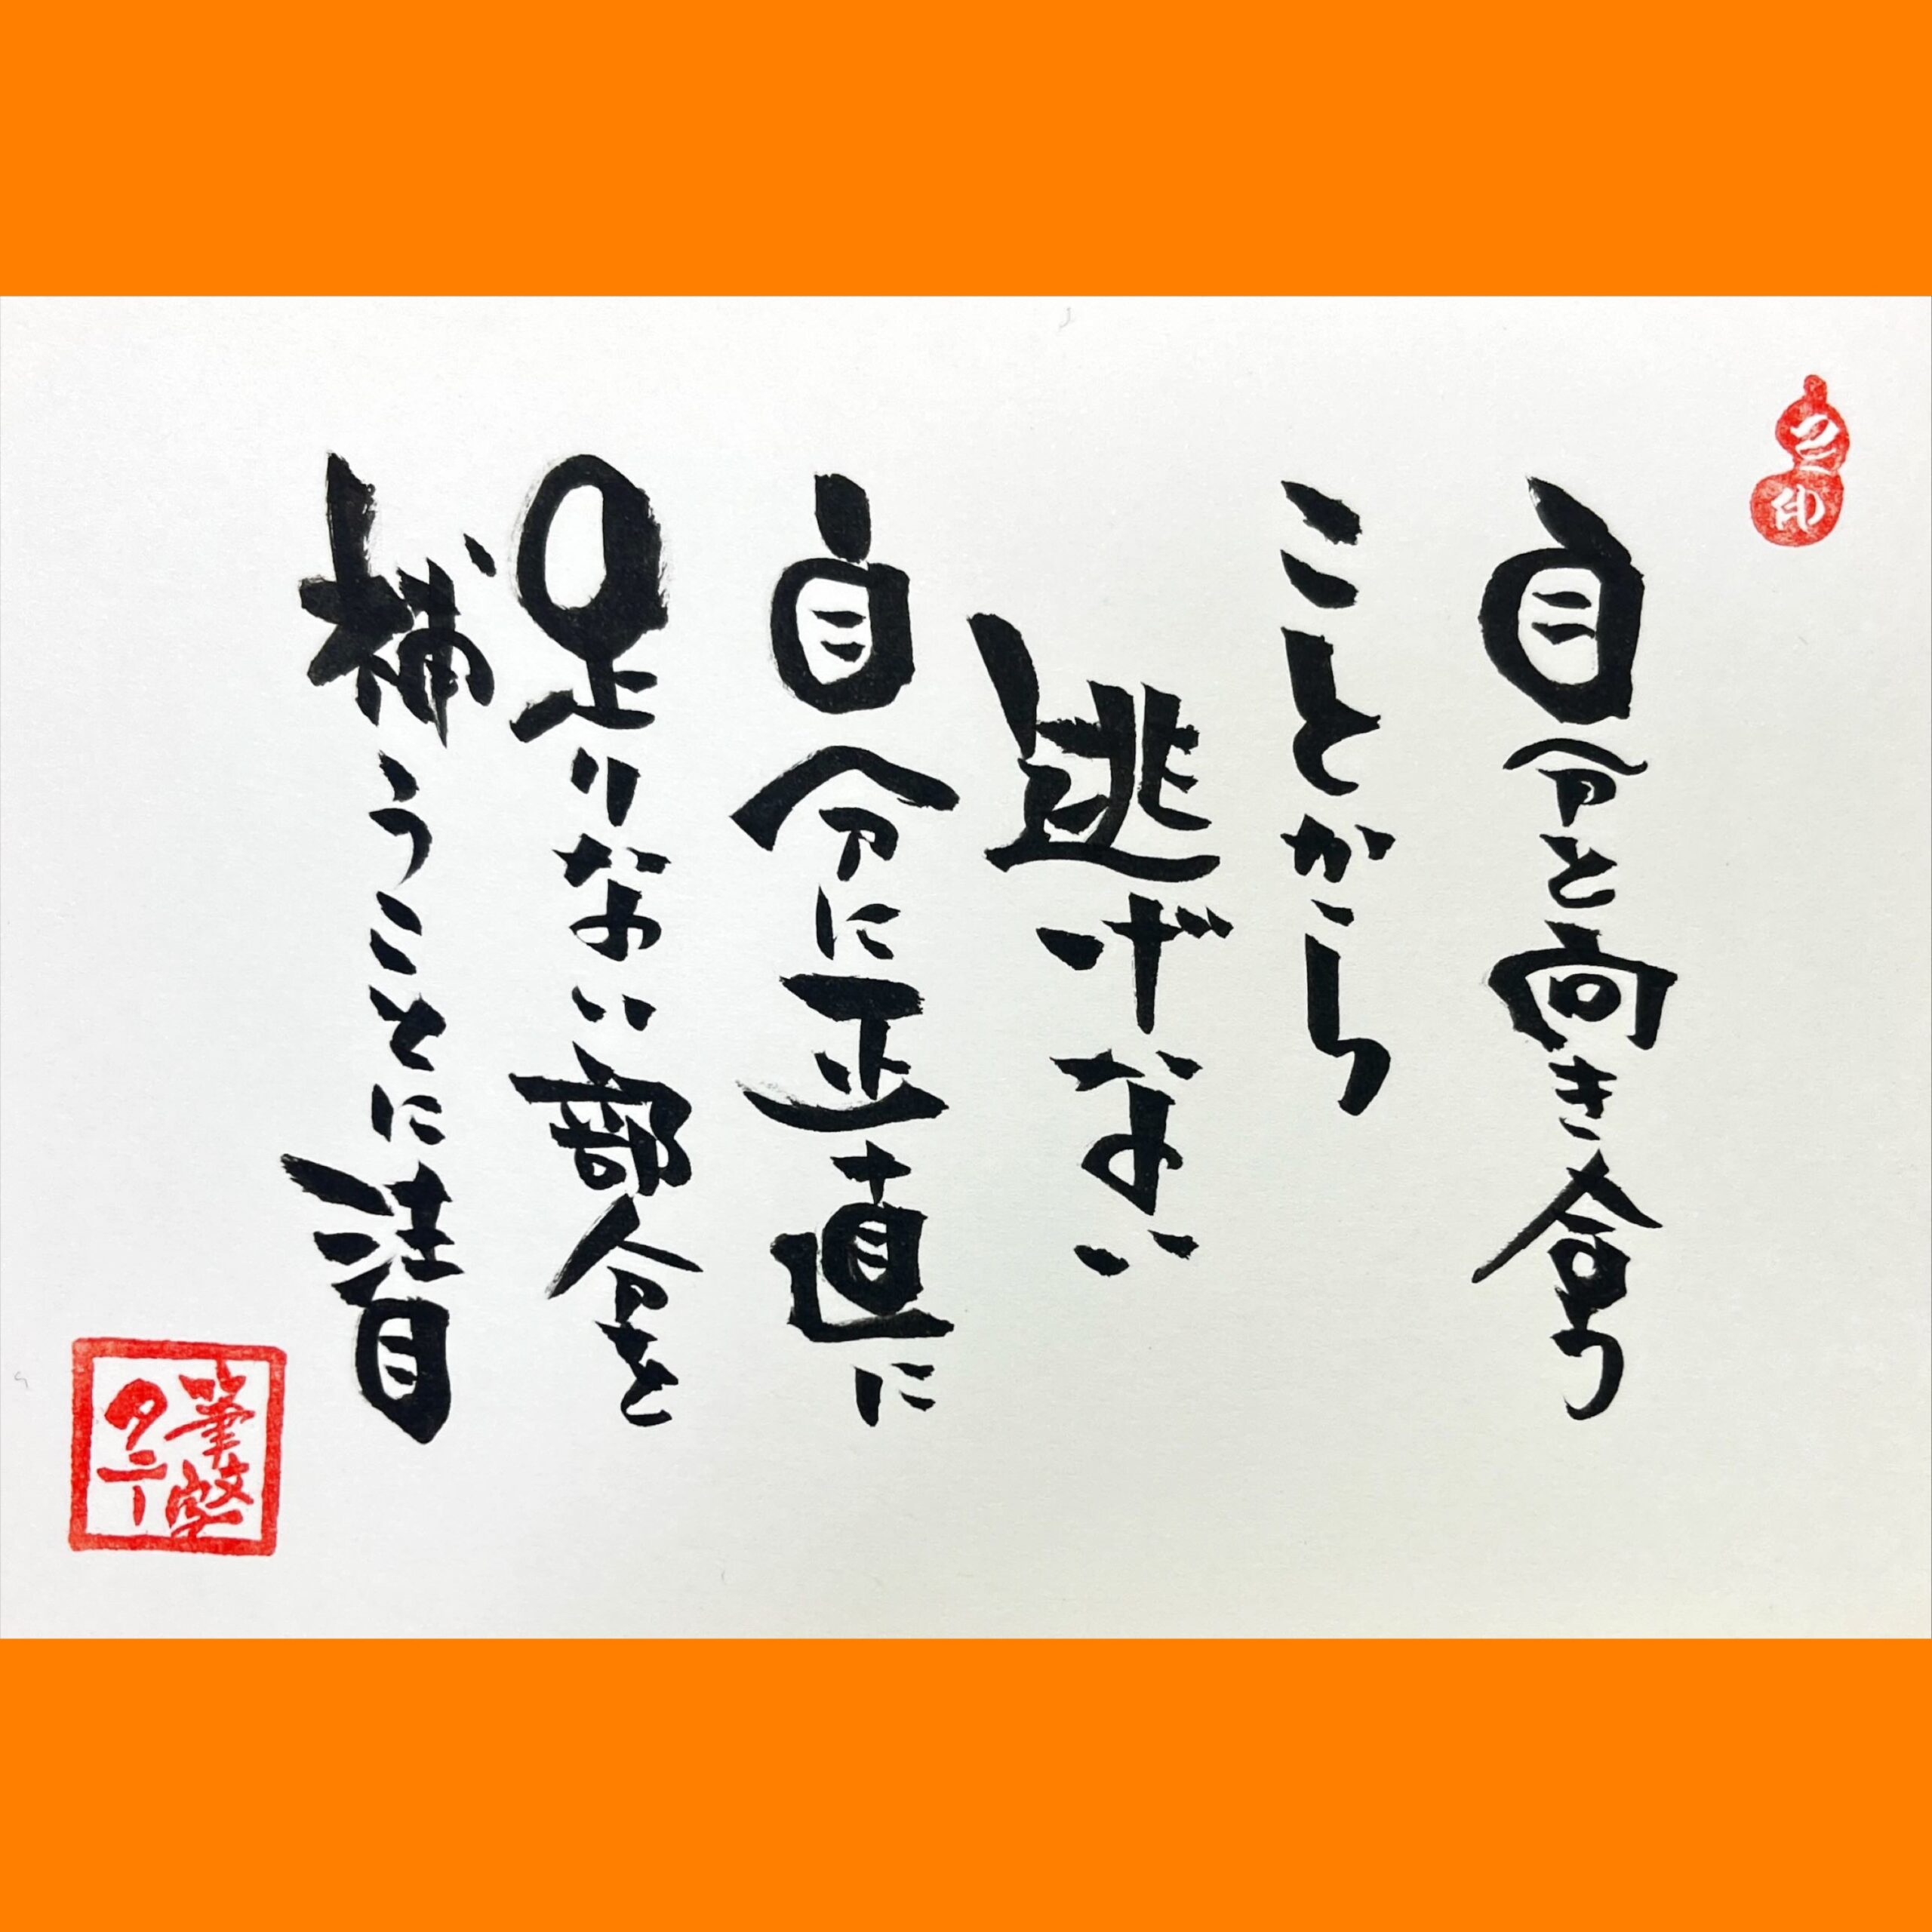 自分と向き合う
ことから
逃げない
自分に正直に
足りない部分を
補うことに注目
筆文字
タニー